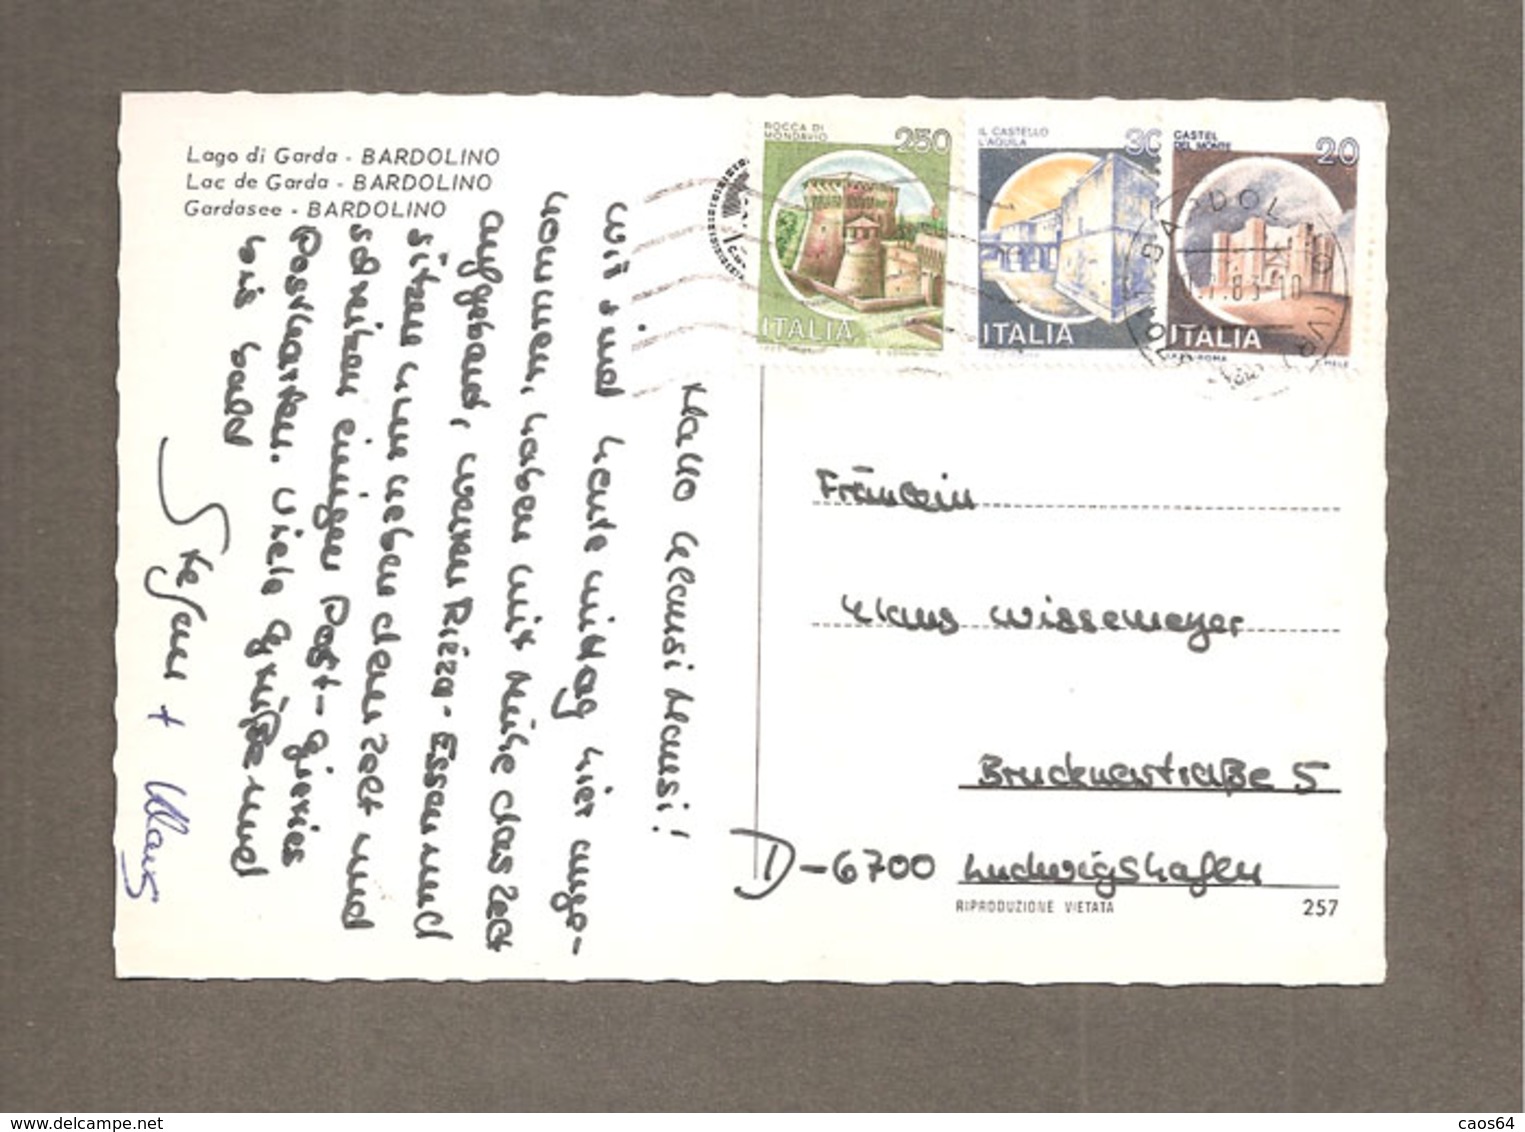 Lago di Garda - BARDOLINO
Lac de Garda - BARDOLINO
Gardasee - BARDOLINO
ROCCA DI
MONDAVIO
250
ITALIA
IL CASTELLO
L'AQUILA
ITALIA
CASTEL
DEL MONTE
20
ITALIA
Hallo Klausi Mausi!
wir sind heute mittag hier ange-
kommen, haben mit Mühe das Zelt
aufgebaut, waren Pizza-Essen und
sitzen nun neben dem Zelt und
schreiben einigen Post-gierigen
Postkarten. Viele Grüße und
bis bald
Stefan + Klaus
Fräulein
Klaus Wissemeyer
Brucknerstraße 5
D-6700 Ludwigshafen
RIPRODUZIONE VIETATA
257
delcampe.net
caos64